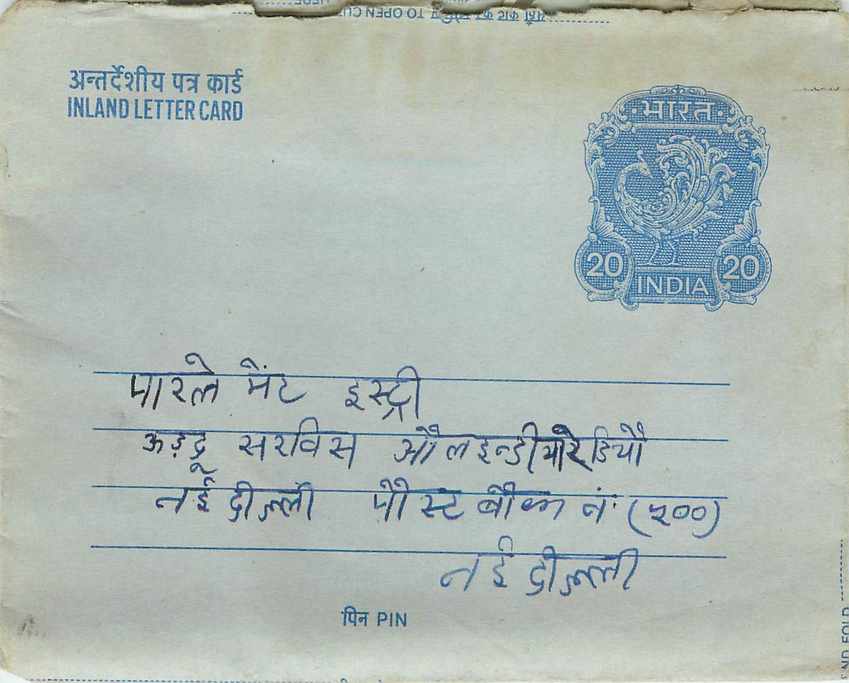 TO OPEN CU
अन्तर्देशीय पत्र कार्ड
INLAND LETTER CARD
भारत
20 20
INDIA
पारले मेंट इस्ट्री
ऊड़दू सरविस औलइन्डीयारेडियौ
नई दील्ली पौस्ट बौक्स नं. (५००)
नई दील्ली
पिन PIN
ND FOLD